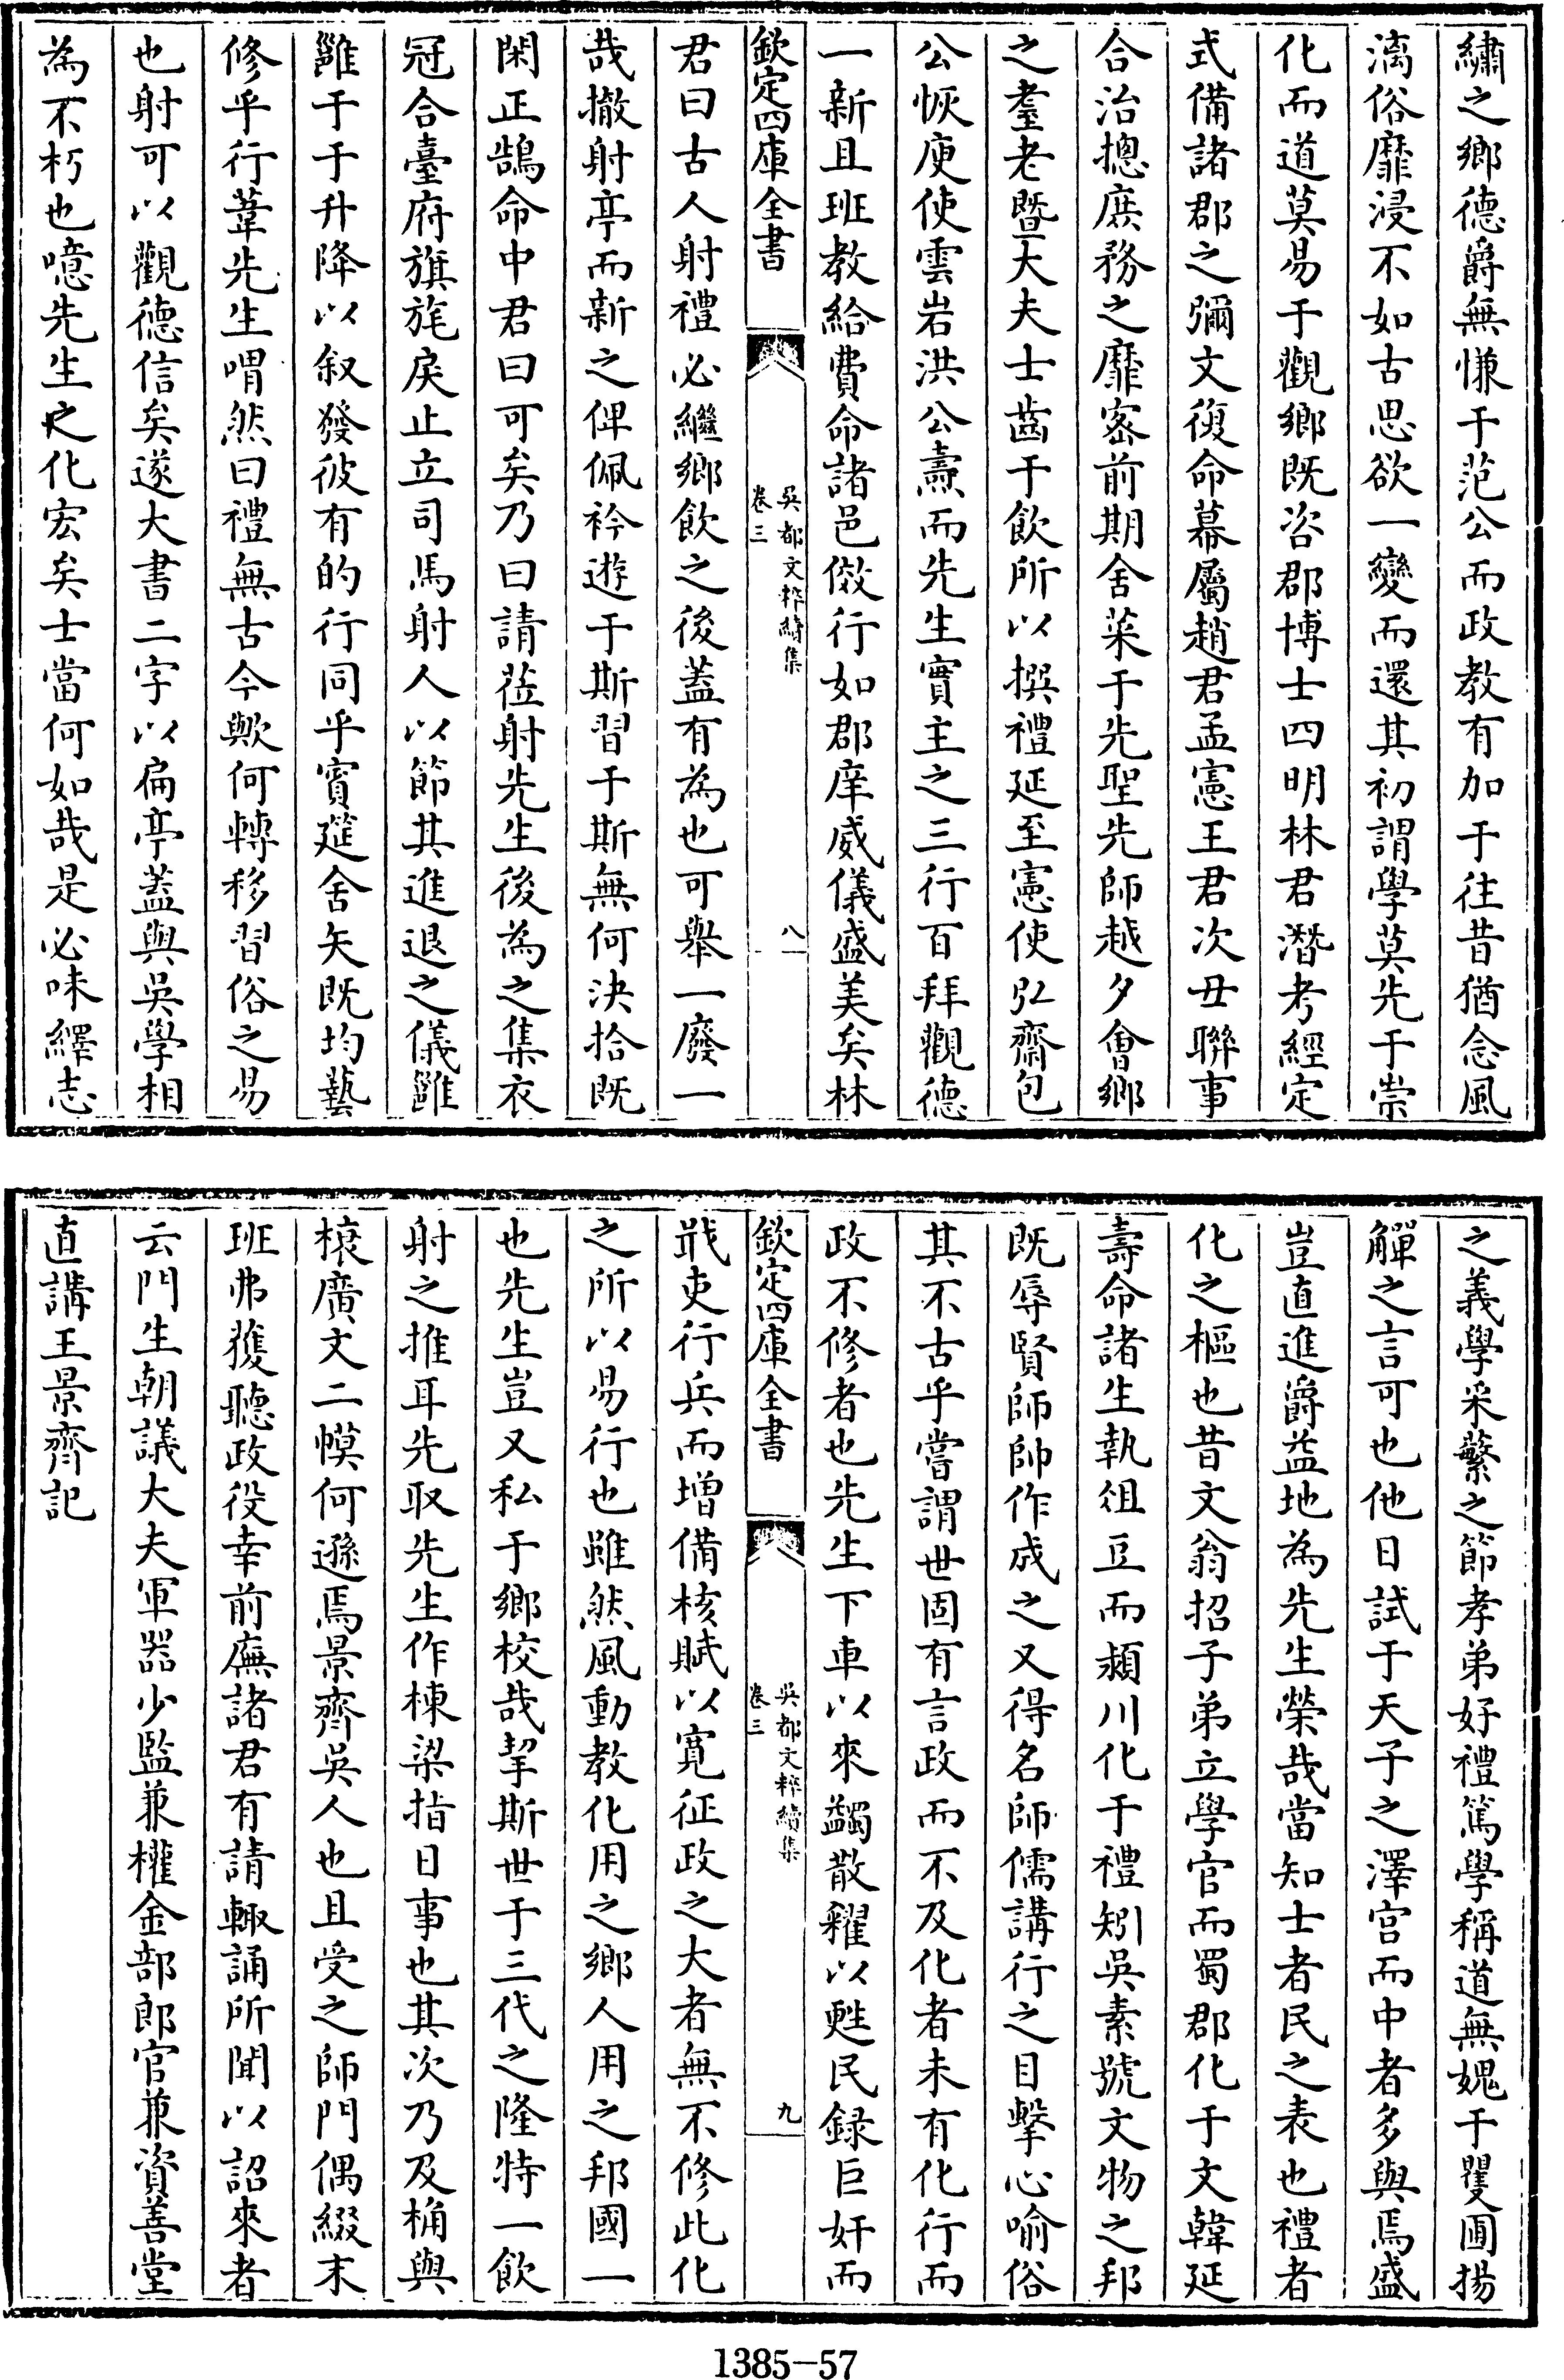 繡之鄉德爵無慊于范公而政教有加于往昔猶念風
漓俗靡浸不如古思欲一變而還其初謂學莫先于崇
化而道莫易于觀鄉既咨郡博士四明林君潛考經定
式備諸郡之彌文復命幕屬趙君孟憲王君次丑聯事
合治摠庶務之靡密前期舍菜于先聖先師越夕會鄉
之耋老暨大夫士齒于飲所以撰禮延至憲使弘齋包
公恢庾使雲岩洪公燾而先生實主之三行百拜觀德
一新且班教給費命諸邑倣行如郡庠威儀盛美矣林
欽定四庫全書
吳都文粹續集
卷三
八
君曰古人射禮必繼鄉飲之後蓋有為也可舉一廢一
哉撤射亭而新之俾佩衿遊于斯習于斯無何決拾既
閑正鵠命中君曰可矣乃曰請蒞射先生後為之集衣
冠合臺府旗旄戾止立司馬射人以節其進退之儀雝
雝于于升降以叙發彼有的行同乎賓筵舍矢既均藝
修乎行葦先生喟然曰禮無古今歟何轉移習俗之易
也射可以觀德信矣遂大書二字以扁亭蓋與吳學相
為不朽也噫先生之化宏矣士當何如哉是必味繹志
之義學采蘩之節孝弟好禮篤學稱道無媿于矍圃揚
觶之言可也他日試于天子之澤宫而中者多與焉盛
豈直進爵益地為先生榮哉當知士者民之表也禮者
化之樞也昔文翁招子弟立學官而蜀郡化于文韓延
壽命諸生執俎豆而潁川化于禮矧吳素號文物之邦
既辱賢師帥作成之又得名師儒講行之目擊心喻俗
其不古乎嘗謂世固有言政而不及化者未有化行而
政不修者也先生下車以來蠲散糴以甦民録巨奸而
欽定四庫全書
吳都文粹續集
卷三
九
戢吏行兵而增備核賦以寛征政之大者無不修此化
之所以易行也雖然風動教化用之鄉人用之邦國一
也先生豈又私于鄉校哉挈斯世于三代之隆特一飲
射之推耳先取先生作棟梁指日事也其次乃及桷與
榱廣文二幙何遜焉景齊吳人也且受之師門偶綴末
班弗獲聽政役幸前廡諸君有請輙誦所聞以詔來者
云門生朝議大夫軍器少監兼權金部郎官兼資善堂
直講王景齊記
1385-57